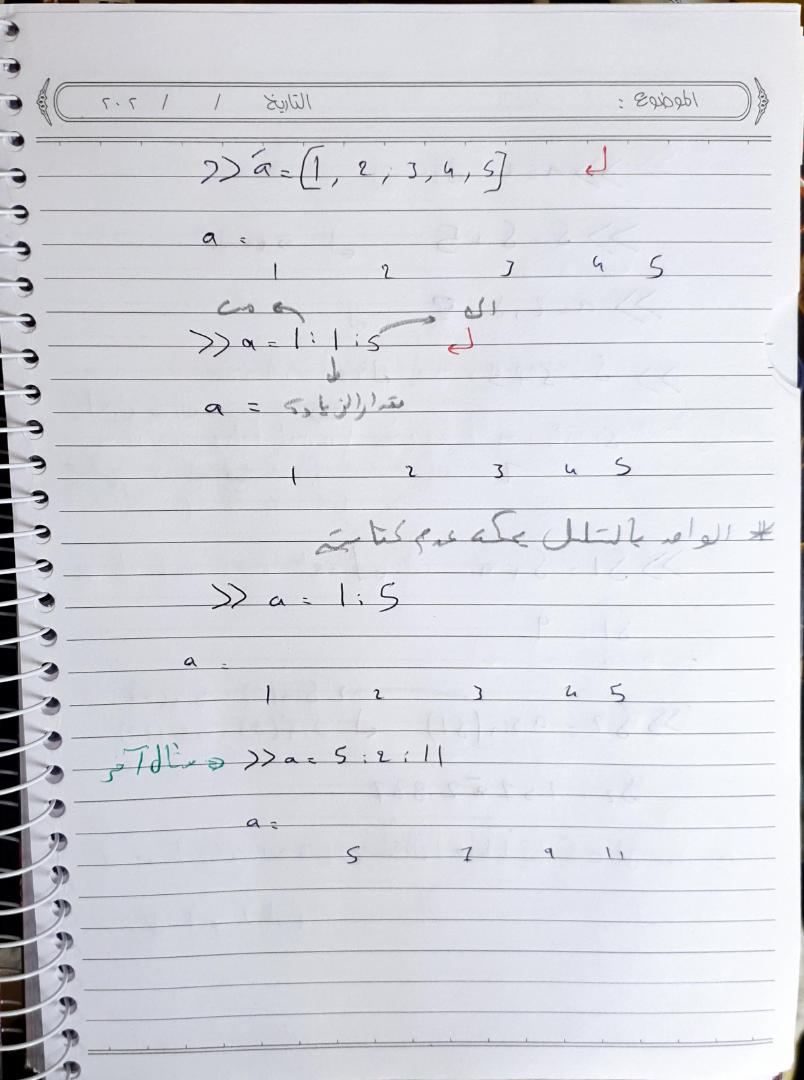 الموضوع : التاريخ / / ٢٠٢
>> a = [1, 2, 3, 4, 5]
a =
1 2 3 4 5
من الى
>> a = 1:1:5
a = مقدار الزيادة
1 2 3 4 5
* الواحد بالتسلسل يمكن عدم كتابته
>> a = 1:5
a =
1 2 3 4 5
مثال آخر >> a = 5:2:11
a =
5 7 9 11